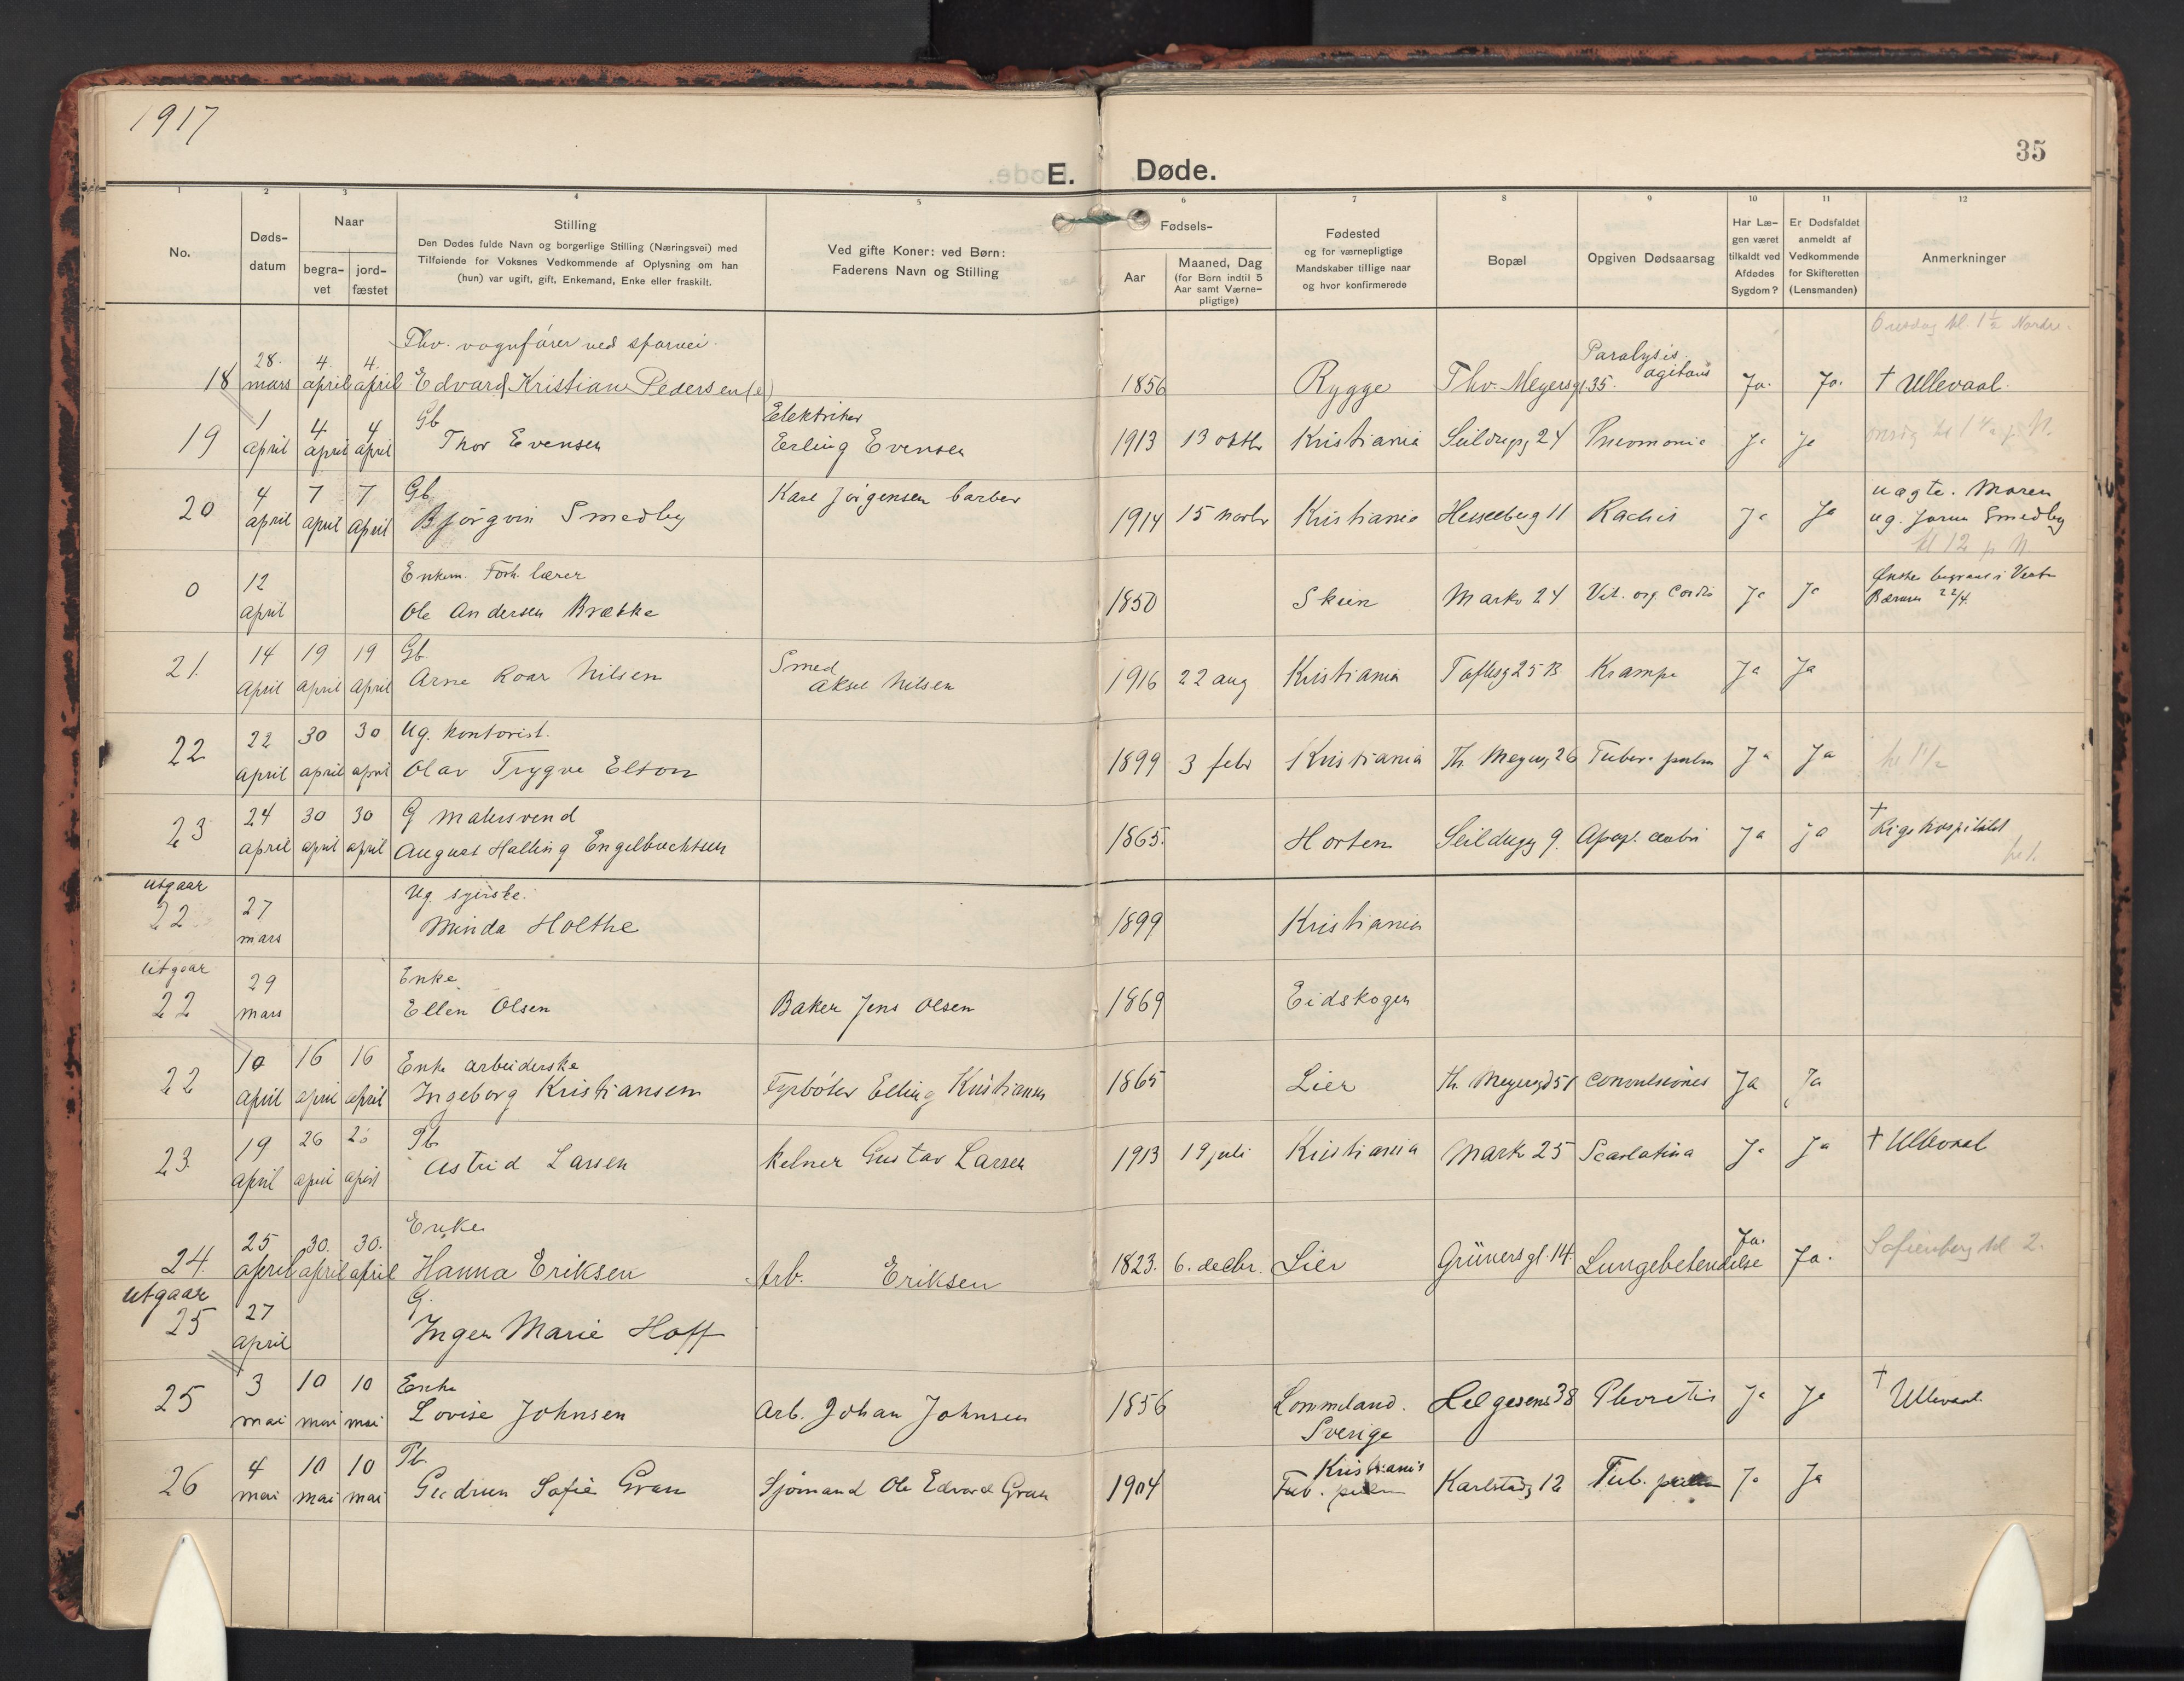 1917
35
E. Døde.
1 2 3 4 5 6 7 8 9 10 11 12
No.
Døds-
datum
Naar
begra-
vet
jord-
fæstet
Stilling
Den Dødes fulde Navn og borgerlige Stilling (Næringsvei) med
Tilføiende for Voksnes Vedkommende af Oplysning om han
(hun) var ugift, gift, Enkemand, Enke eller fraskilt.
Ved gifte Koner: ved Børn:
Faderens Navn og Stilling
Fødsels-
Aar
Maaned, Dag
(for Børn indtil 5
Aar samt Værne-
pligtige)
Fødested
og for værnepligtige
Mandskaber tillige naar
og hvor konfirmerede
Bopæl
Opgiven Dødsaarsag
Har Læ-
gen været
tilkaldt ved
Afdødes
Sygdom?
Er Dødsfaldet
anmeldt af
Vedkommende
for Skifteretten
(Lensmanden)
Anmerkninger
Fhv. vognfører ved sporvei. Onsdag kl. 1½ Nordre.
28. 4. 4. Paralysis
18 mars april april Edvard Kristian Pedersen 1856 Rygge Thv. Meyersgt. 35. agitans Ja. Ja. † Ullevaal.
1 4 4 Gb Elektriker
19 april april april Thor Evensen Erling Evensen 1913 13 oktbr Kristiania Seildugsg 24 Pneomonia Ja Ja
4 7 7 Gb Karl Jørgensen barber uægte. Moren
20 april april april Bjørgvin Smedby 1914 15 novbr Kristiania Hesselberg 11 Rachis Ja Ja ug. Smedby
kl 12 p N.
12 Enkem. Forh. lærer
0 april Ole Andersen Brække 1850 Skien Markv 24 Vit. org. Cordis Ja Ja Bærum 22/4.
14 19 19 Gb Smed
21. april april april Arne Roar Nilsen Aksel Nilsen 1916 22 aug Kristiania Toftesg 25 B Krampe Ja Ja
22 30 30 Ug. kontorist.
22 april april april Olav Trygve Elton 1899 3 febr Kristiania Th. Meyersg 26 Tuber. pulm Ja Ja kl 1½
24 30 30 G malersvend †
23 april april april August Halling Engelbrechtsen 1865. Horten Seildugsg 9. Apopl. cerebri Ja ja Rigshospitalet
kl 1.
utgaar 27 Ug. syerske.
22 mars Minda Holthe 1899 Kristiania
utgaar 29 Enke
22 mars Ellen Olsen Baker Jens Olsen 1869 Eidskogen
10 16 16 Enke arbeiderske
22 april april april Ingeborg Kristiansen Fyrbøter Elling Kristiansen 1865 Lier Th. Meyersgd 51 convulsiones Ja Ja
19 26 26 Pb
23. april april april Astrid Larsen kelner Gustav Larsen 1913 19 juli Kristiania Markv 25 Scarlatina Ja Ja † Ullevaal
25 30. 30. Enke
24. april april april Hanna Eriksen Arb. Eriksen 1823. 6. decbr. Lier Grünersgt. 14. Lungebetendelse Ja. Ja. Sofienberg kl 2.
utgaar 27 G.
25 april Inger Marie Hoff
3 10 10 Enke
25 mai mai mai Lovise Johnsen Arb. Johan Johnsen 1856 Lommeland. Helgesens 38 Ja Ja † Ullevaal.
Sverige
4 10 10 Pb Kristiania
26 mai mai mai Gudrun Sofie Gran Sjømand Ole Edvard Gran 1904 Tub. pulm Karlstadg 12 Tub. pulm Ja Ja